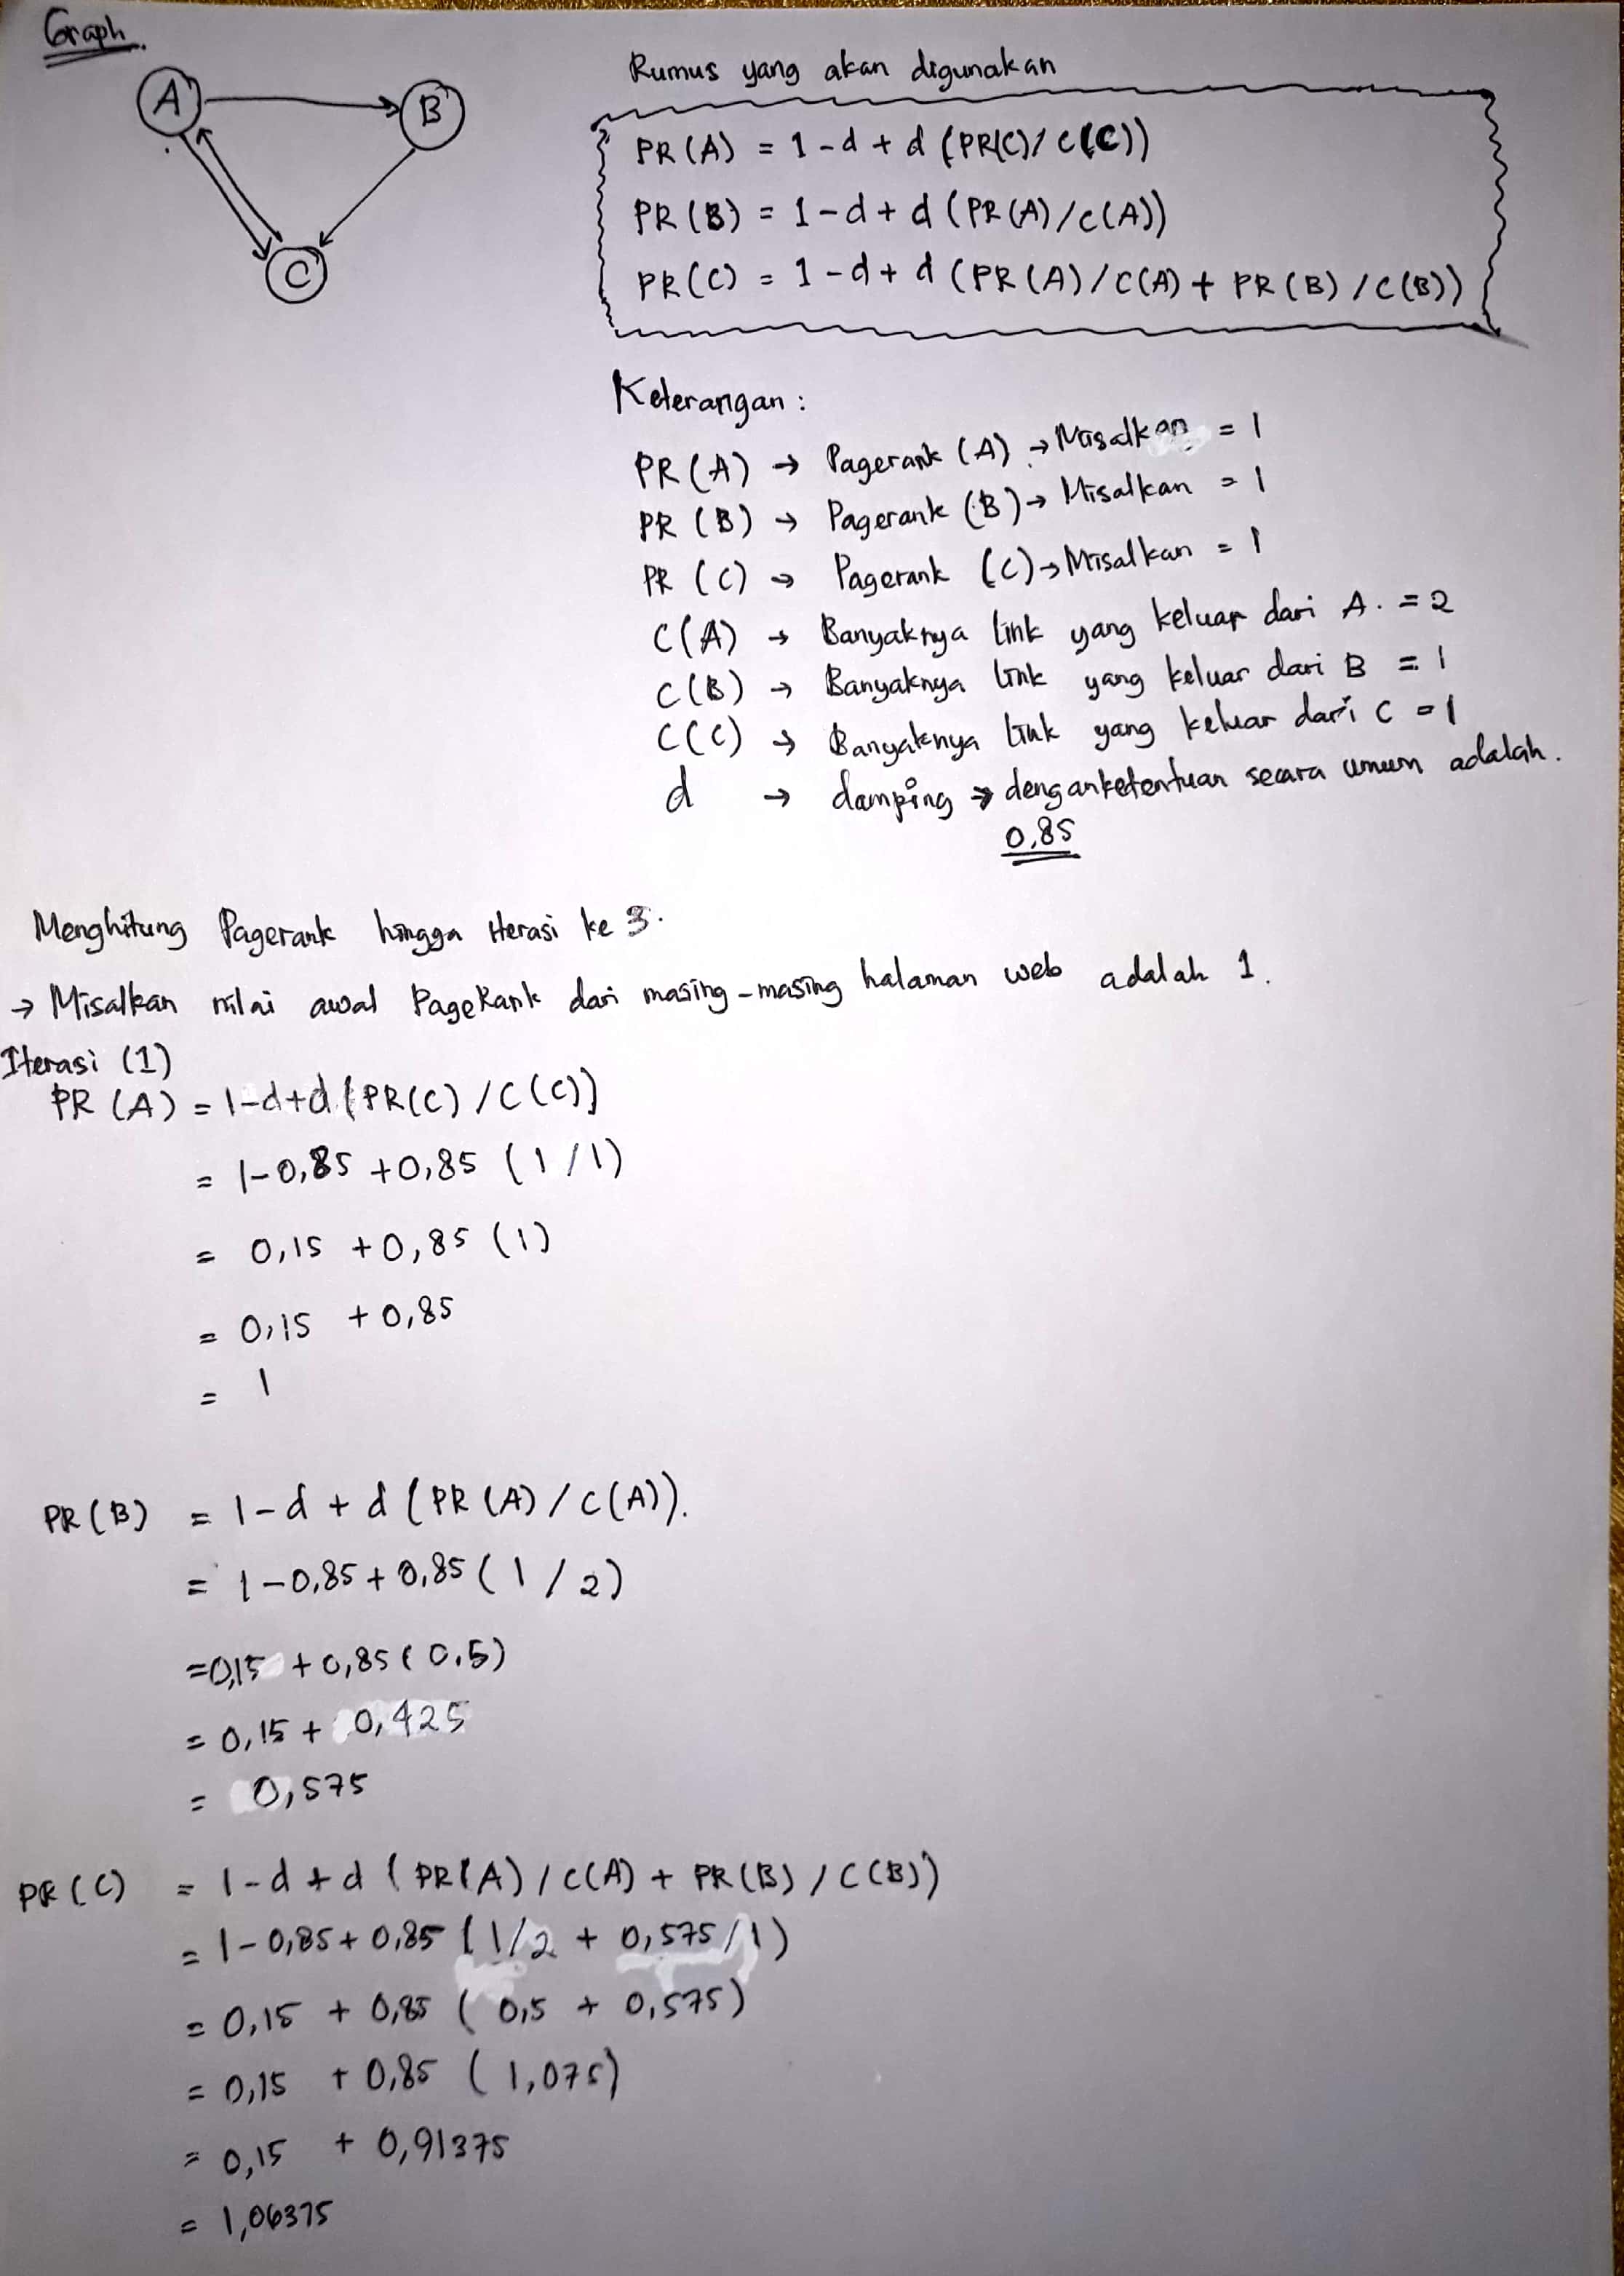 Graph.
A
B
C
Rumus yang akan digunakan
PR (A) = 1 - d + d (PR(C) / C(C))
PR (B) = 1 - d + d (PR (A) / C(A))
PR (C) = 1 - d + d (PR (A) / C(A) + PR (B) / C(B))
Keterangan :
PR (A) → Pagerank (A) → Misalkan = 1
PR (B) → Pagerank (B) → Misalkan = 1
PR (C) → Pagerank (C) → Misalkan = 1
C(A) → Banyaknya link yang keluar dari A. = 2
C(B) → Banyaknya link yang keluar dari B = 1
C(C) → Banyaknya link yang keluar dari C = 1
d → damping → dengan ketentuan secara umum adalah.
0,85
Menghitung Pagerank hingga iterasi ke 3.
→ Misalkan nilai awal PageRank dari masing-masing halaman web adalah 1.
Iterasi (1)
PR (A) = 1-d+d (PR(C) / C(C))
= 1-0,85 +0,85 (1/1)
= 0,15 +0,85 (1)
= 0,15 +0,85
= 1
PR (B) = 1-d + d (PR (A) / C(A)).
= 1-0,85 + 0,85 (1/2)
= 0,15 +0,85 (0,5)
= 0,15 + 0,425
= 0,575
PR (C) = 1-d + d (PR(A) / C(A) + PR (B) / C(B))
= 1-0,85 + 0,85 (1/2 + 0,575/1)
= 0,15 + 0,85 (0,5 + 0,575)
= 0,15 + 0,85 (1,075)
= 0,15 + 0,91375
= 1,06375